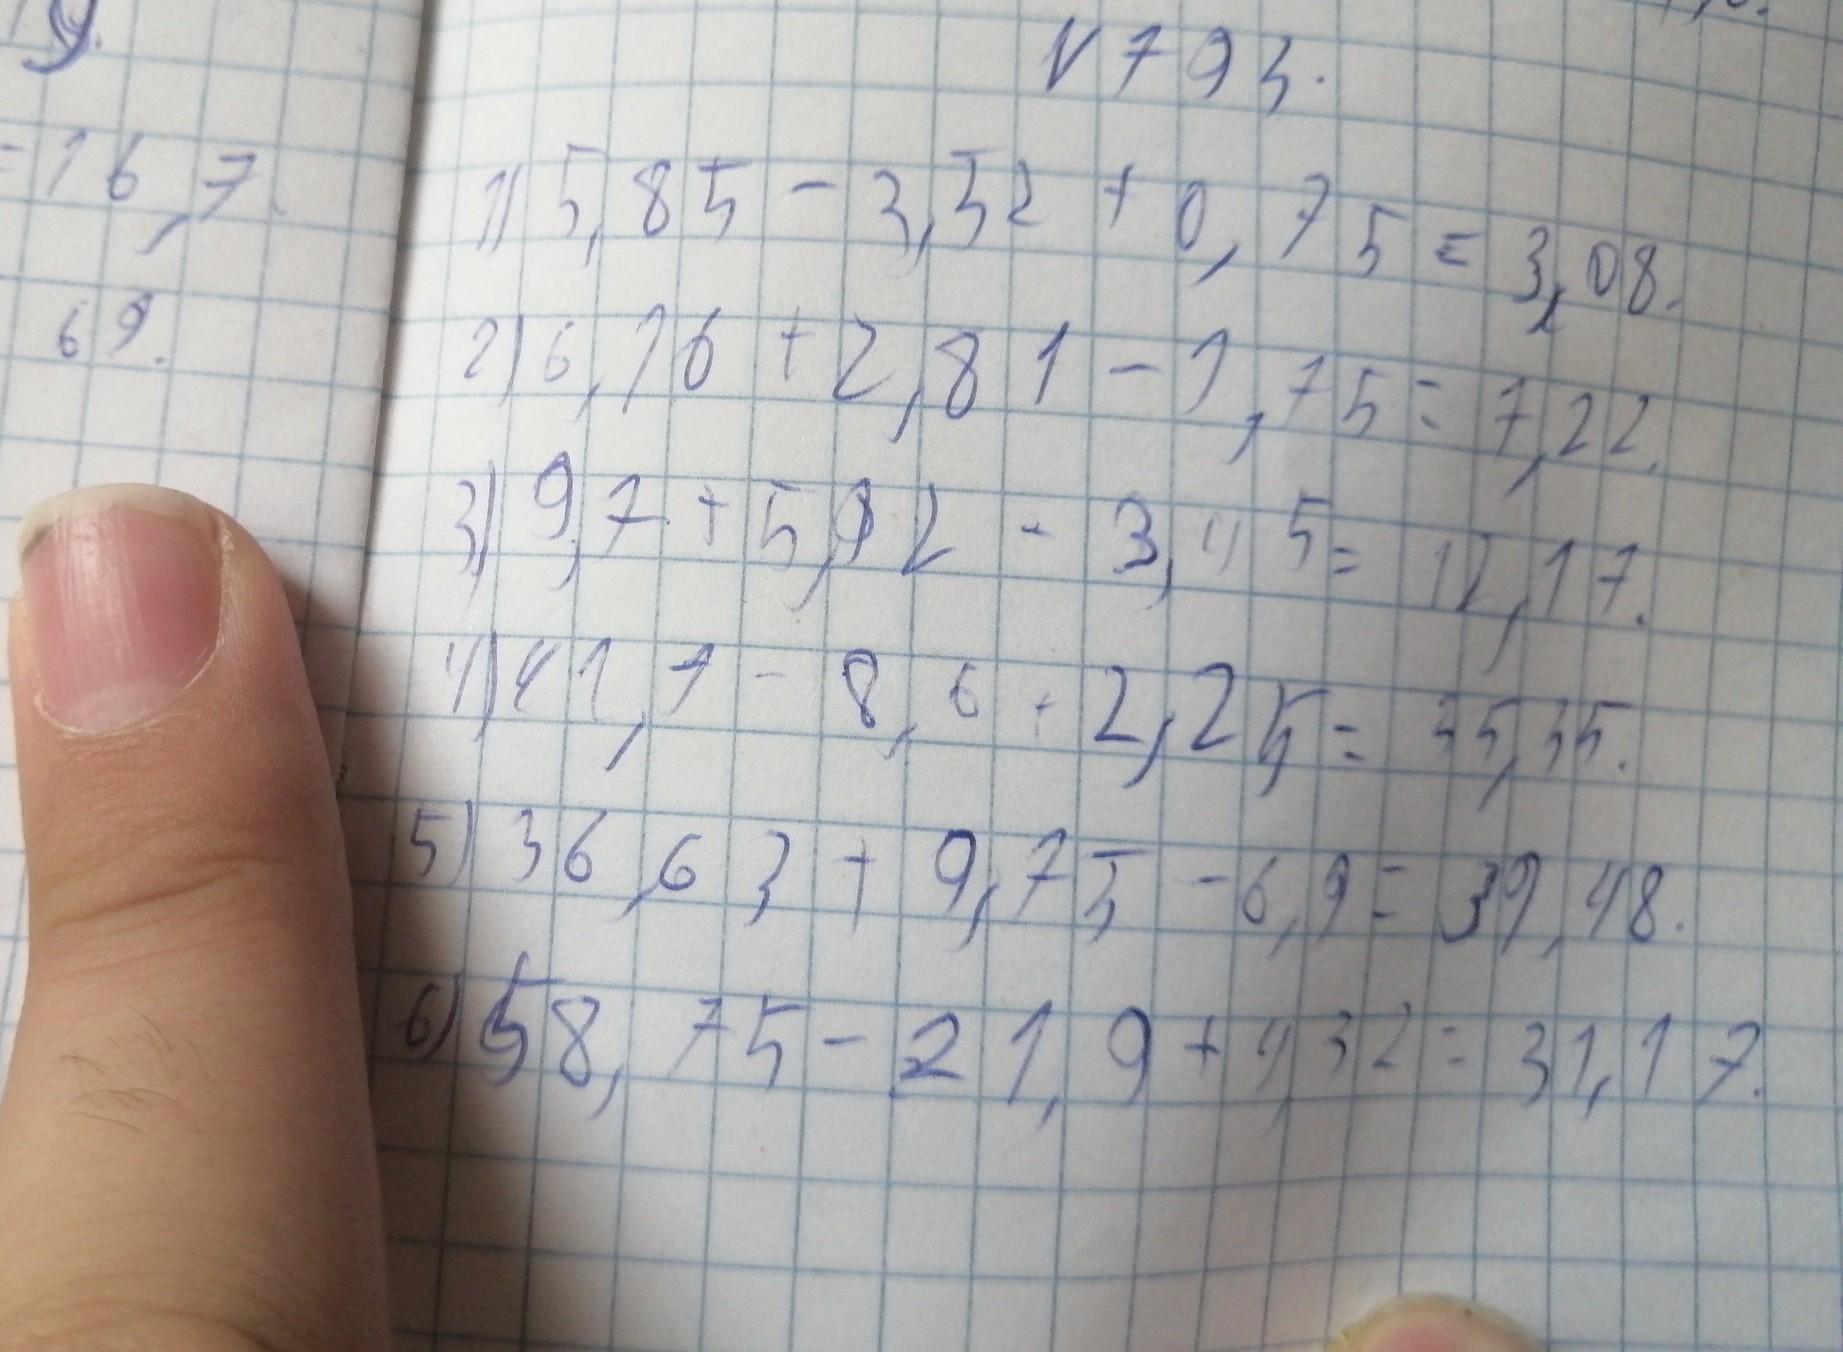 N 793.
=16,7
1) 5,85 - 3,52 + 0,75 = 3,08.
69.
2) 6,16 + 2,81 - 1,75 = 7,22.
3) 9,7 + 5,92 - 3,45 = 12,17.
4) 41,7 - 8,6 + 2,25 = 35,35.
5) 36,63 + 9,75 - 6,9 = 39,48.
6) 58,75 - 21,9 + 4,32 = 31,17.